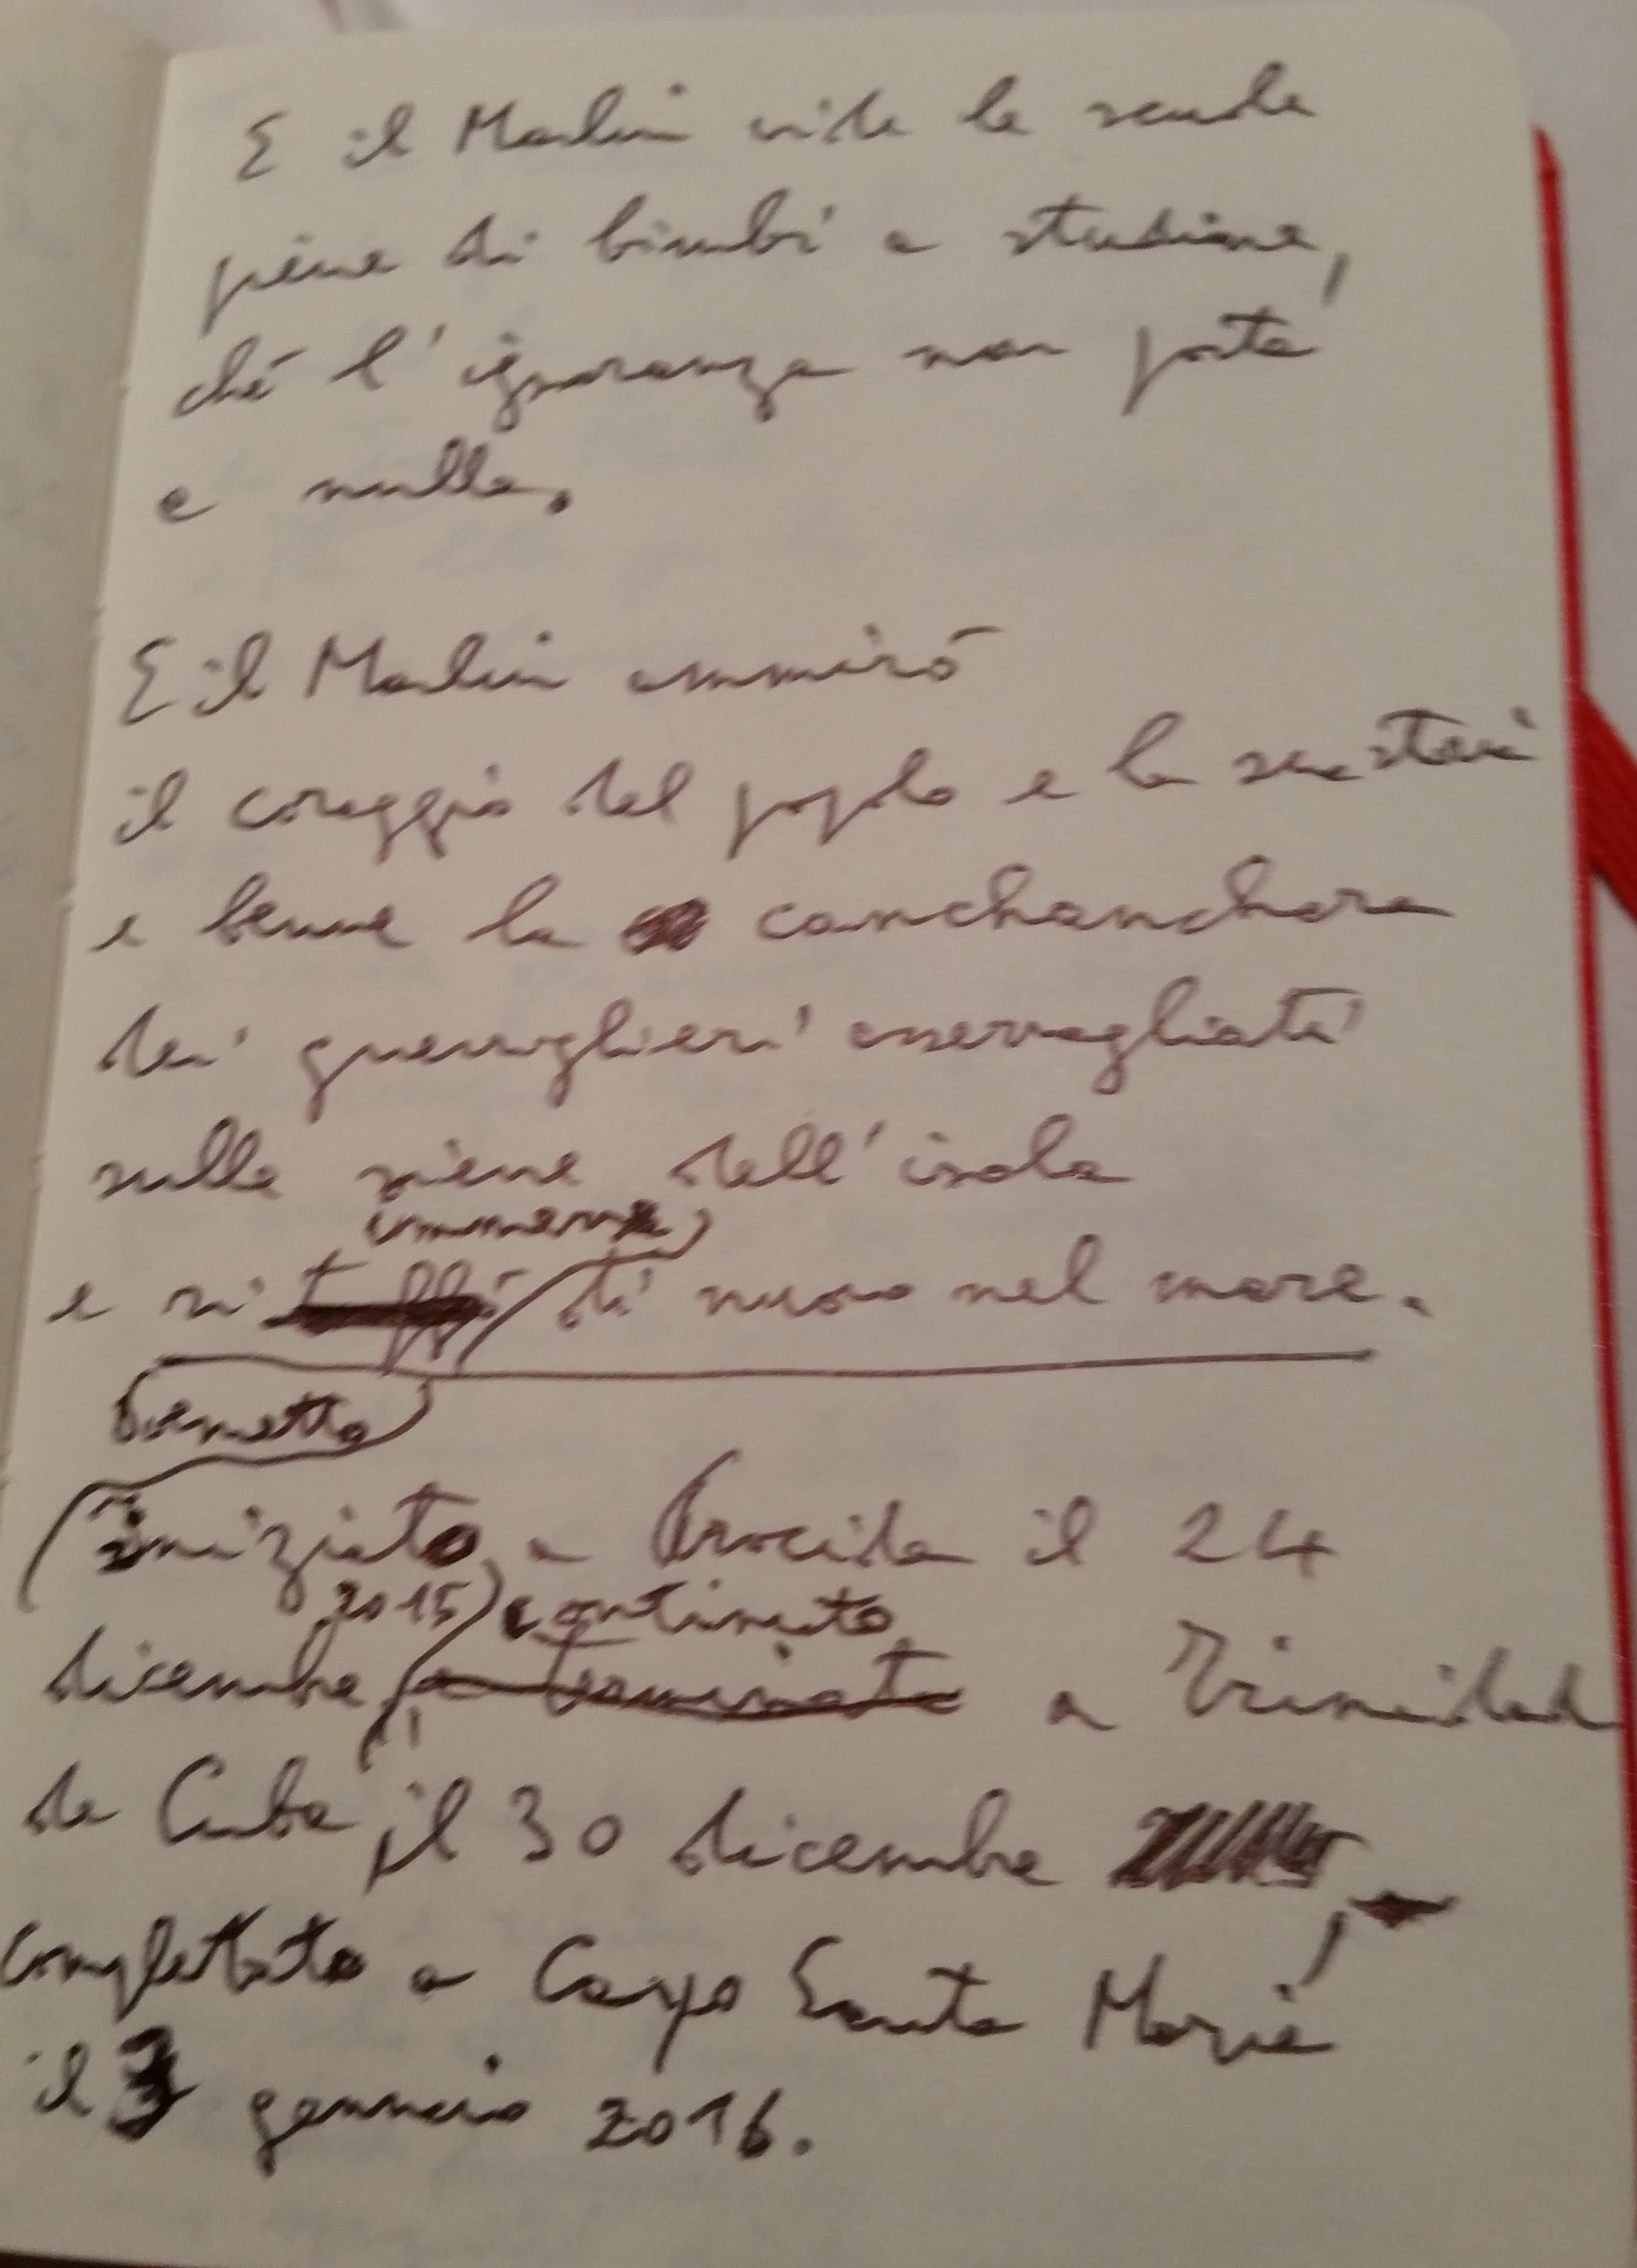 E il Marlin vide le scuole
piene di bimbi a studiare,
ché l'ignoranza non porta
a nulla.
E il Marlin ammirò
il coraggio del popolo e la
e bevve la canchanchara
dei guerriglieri asserragliati
sulle sierre dell'isola
immerse
e si tuffò di nuovo nel mare.
Poemetto
iniziato a Procida il 24
2015, continuato
dicembre, e terminato a Trinidad
de Cuba, il 30 dicembre
completato a Cayo Santa Maria
il 3 gennaio 2016.